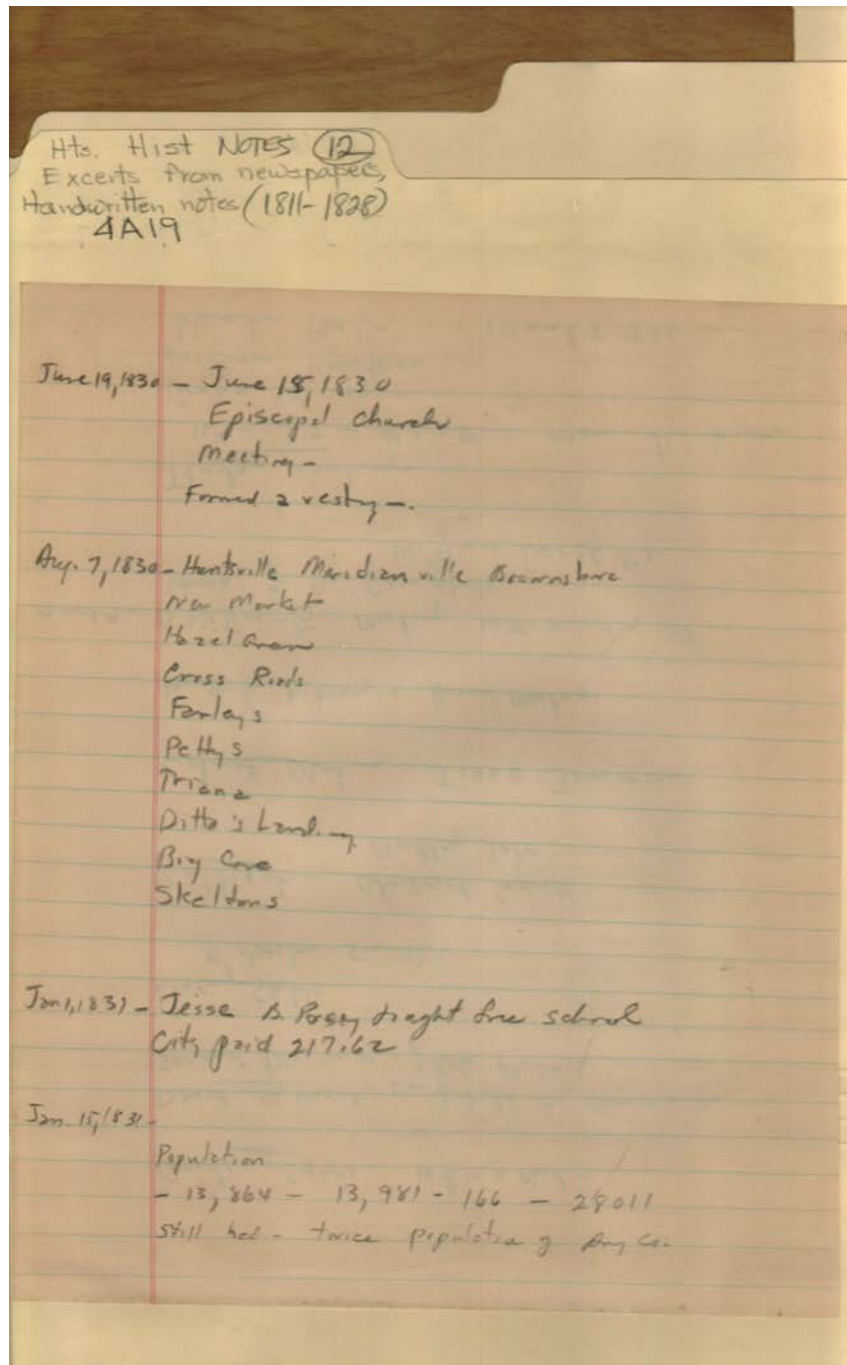 Hts. Hist NOTES (12)
Excerts from newspapers,
Handwritten notes (1811-1828)
4A19
June 19, 1830 - June 15, 1830
Episcopal church
Meeting -
Formed a vestry -.
Aug. 7, 1830 - Huntsville Meridianville Brownsboro
New Market
Hazel Green
Cross Roads
Farleys
Pettys
Triana
Ditto's Landing
Big Cove
Skeltons
Jan 1, 1831 - Jesse B. taught free school
City paid 217.62
Jan. 15, 1831 -
Population
- 13,864 - 13,981 - 166 - 28011
still had - twice population of any Co.